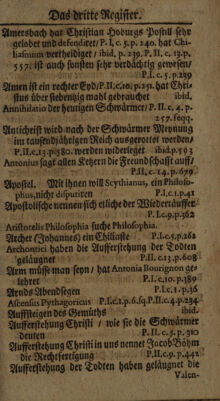 Das dritte Register.
Amersbach hat Christian Hoburgs Postill sehr
gelobet und defendiret/ P. I, c. 5. p. 240. hat Chi-
liasmum vertheidiget/ ibid, p. 239. P. II. c. 13. p.
557. ist auch sonsten sehr verdächtig gewesen/
P. I. c. 5. p. 239
Amen ist ein rechter Eyd/ P. II. c. 10. p. 251. hat Chri-
stus über siebentzig mahl gebrauchet ibid.
Annihilatio der heutigen Schwärmer/ P. II. c. 4. p.
257. seqq.
Antichrist wird nach der Schwärmer Meynung
im tausendjährigen Reich ausgerottet werden/
P. II. c. 13. p. 580. werden widerleget ibid. p. 593
Antonius sagt allen Ketzern die Freundschafft auff/
P. II, c. 14. p. 679
Apostel. Mit ihnen will Scythianus, ein Philoso-
phus, nicht disputiren P. I. c. 1. p. 41
Apostolische nennen sich etliche der Wiedertäuffer
P. I. c. 9. p. 362
Aristotelis Philosophia suche Philosophia.
Archer (Johannes) ein Chiliaste P. I. c. 5. p. 262
Archontici haben die Aufferstehung der Todten
geläugnet P. II. c. 13. p. 608
Arm müsse man seyn/ hat Antonia Bourignon ge-
lehret P. I. c, 10. p. 389
Arnds Abendsegen P. I. c. 1. p. 36
Ascensius Pythagoricus P. I. c. 1. p. 6. sq. P. II. c. 4. p. 234
Auffsteigen des Gemüths ibid.
Aufferstehung Christi/ wie sie die Schwärmer
deuten P. II. c. 5. p. 310
Aufferstehung Christi in uns nennet Jacob Böhm
die Rechtfertigung P. II. c. 9. p. 442
Aufferstehung der Todten haben geläugnet die
Valen-